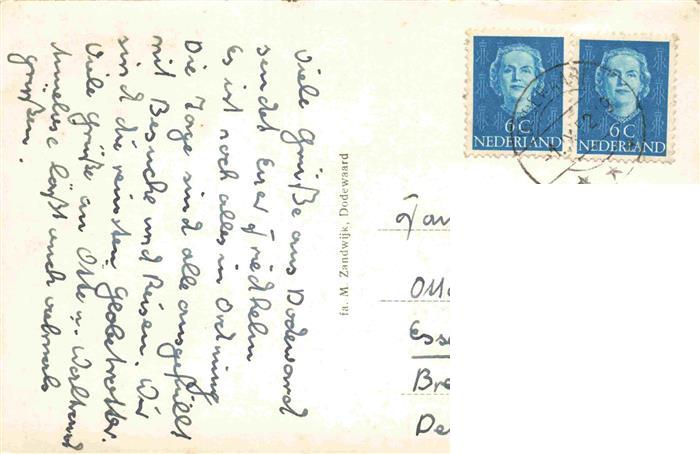 Viele Grüße aus Dodewaard
sendet Euer Friedhelm
Es ist noch alles in Ordnung
Die Tage sind alle ausgefüllt
mit Besuche und Reisen. Wir
sind die reinsten Globetrotter.
Viele Grüße an Otto u. Waltraud
Anneliese läßt auch vielmals
grüßen.
fa. M. Zandwijk, Dodewaard
6 C
NEDERLAND
6 C
NEDERLAND
Fam
Otto
Esse
Bre
De